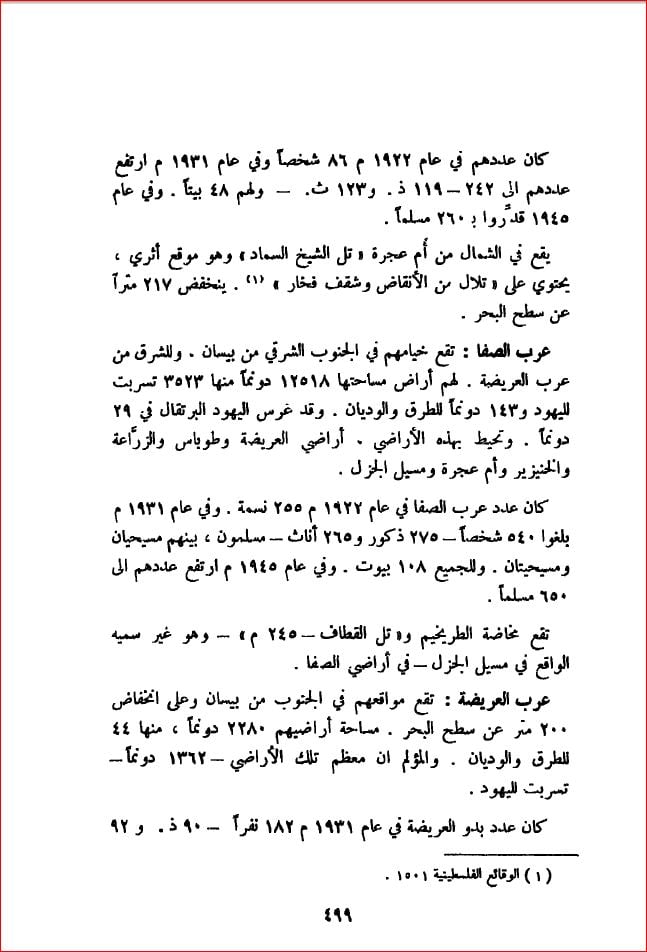 كان عددهم في عام ١٩٢٢ م ٨٦ شخصاً وفي عام ١٩٣١ م ارتفع
عددهم الى ٢٤٢ – ١١٩ ذ. و١٢٣ ث. – ولهم ٤٨ بيتاً . وفي عام
١٩٤٥ قدَّروا بـ ٢٦٠ مسلماً .
يقع في الشمال من أم عجرة « تل الشيخ السماد » وهو موقع أثري ،
يحتوي على « تلال من الأنقاض وشقف فخار » (١) . ينخفض ٢١٧ متراً
عن سطح البحر .
عرب الصفا : تقع خيامهم في الجنوب الشرقي من بيسان . وللشرق من
عرب العريضة . لهم أراض مساحتها ١٢٥١٨ دونماً منها ٣٥٢٣ تسربت
لليهود و١٤٣ دونماً للطرق والوديان . وقد غرس اليهود البرتقال في ٢٩
دونماً . وتحيط بهذه الأراضي . أراضي العريضة وطوباس والزرَّاعة
والخنيزير وأم عجرة ومسيل الجزل .
كان عدد عرب الصفا في عام ١٩٢٢ م ٢٥٥ نسمة . وفي عام ١٩٣١ م
بلغوا ٥٤٠ شخصاً – ٢٧٥ ذكور و٢٦٥ أناث – مسلمون ، بينهم مسيحيان
ومسيحيتان . وللجميع ١٠٨ بيوت . وفي عام ١٩٤٥ م ارتفع عددهم الى
٦٥٠ مسلماً .
تقع مخاضة الطريخيم و« تل القطاف – ٢٤٥ م » – وهو غير سميه
الواقع في مسيل الجزل – في أراضي الصفا .
عرب العريضة : تقع مواقعهم في الجنوب من بيسان وعلى انخفاض
٢٠٠ متر عن سطح البحر . مساحة أراضيهم ٢٢٨٠ دونماً ، منها ٤٤
للطرق والوديان . والمؤلم ان معظم تلك الأراضي – ١٣٦٢ دونماً –
تسربت لليهود .
كان عدد بدو العريضة في عام ١٩٣١ م ١٨٢ نفراً – ٩٠ ذ. و ٩٢
(١) الوقائع الفلسطينية ١٥٠١ .
٤٩٩